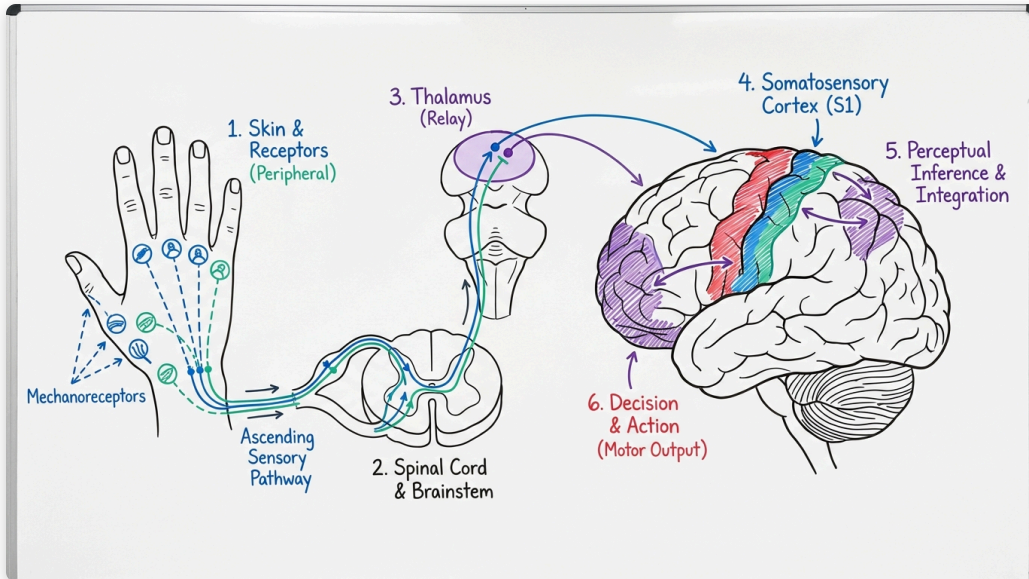 1. Skin &
Receptors
(Peripheral)
Mechanoreceptors
Ascending
Sensory
Pathway
2. Spinal Cord
& Brainstem
3. Thalamus
(Relay)
4. Somatosensory
Cortex (S1)
5. Perceptual
Inference &
Integration
6. Decision
& Action
(Motor Output)